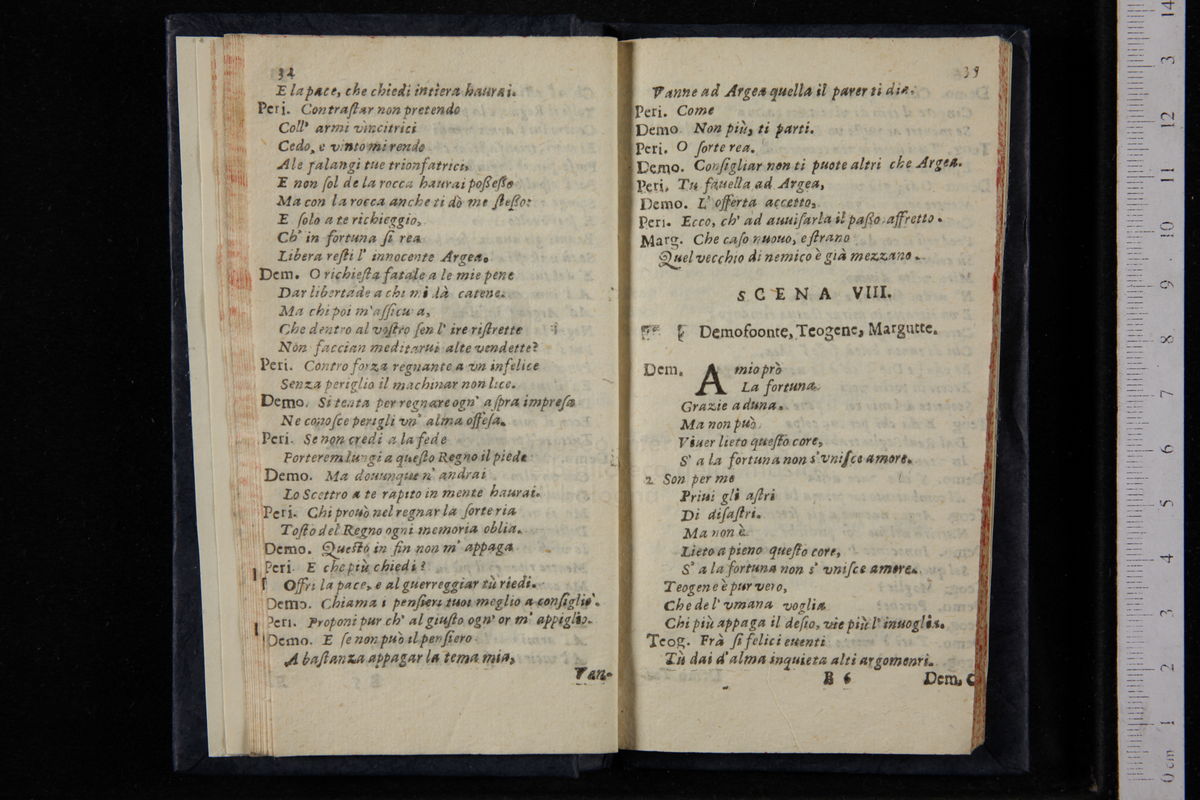 32
E la pace, che chiedi intiera haurai.
Peri. Contraſtar non pretendo
Coll' armi vincitrici
Cedo, e vinto mi rendo
Ale falangi tue trionfatrici,
E non ſol de la rocca haurai poßeßo
Ma con la rocca anche ti dò me ſteßo:
E ſolo a te richieggio,
Ch' in fortuna ſi rea
Libera reſti l' innocente Argea.
Dem. O richieſta fatale a le mie pene
Dar libertade a chi mi dà catene.
Ma chi poi m'aſſicu a,
Che dentro al voſtro ſen l' ire riſtrette
Non faccian meditarui alte vendette?
Peri. Contro forza regnante a vn infelice
Senza periglio il machinar non lice.
Demo. Si tenta per regnare ogn' aſpra impreſa
Ne conoſce perigli vn' alma offeſa.
Peri. Se non credi a la fede
Porterem lungi a queſto Regno il piede
Demo. Ma douunque n' andrai
Lo Scettro a te rapito in mente haurai.
Peri. Chi prouò nel regnar la ſorte ria
Toſto del Regno ogni memoria oblia.
Demo. Queſto in fin non m' appaga
Peri. E che più chiedi?
Offri la pace, e al guerreggiar tù riedi.
Demo. Chiama i penſieri tuoi meglio a conſiglio.
Peri. Proponi pur ch' al giuſto ogn' or m' appiglio.
Demo. E ſe non può il penſiero
A baſtanza appagar la tema mia,
Van-
Vanne ad Argea quella il parer ti dia.
Peri. Come
Demo Non più, ti parti.
Peri. O ſorte rea.
Demo. Conſigliar non ti puote altri che Argea.
Peri. Tu fauella ad Argea,
Demo. L' offerta accetto,
Peri. Ecco, ch' ad auuiſarla il paßo affretto.
Marg. Che caſo nuouo, e ſtrano
Quel vecchio di nemico è già mezzano.
SCENA VIII.
Demofoonte, Teogene, Margutte.
Dem. A mio prò
La fortuna
Grazie aduna.
Ma non può
Viuer lieto queſto core,
S' a la fortuna non s'vniſce amore.
2 Son per me
Priui gli aſtri
Di diſaſtri.
Ma non è
Lieto a pieno queſto core,
S' a la fortuna non s' vniſce amore.
Teogene è pur vero,
Che de l' vmana voglia
Chi più appaga il deſio, vie più l' inuoglia.
Teog. Frà ſi felici euenti
Tù dai d'alma inquieta alti argomenri.
B 6 Dem. C